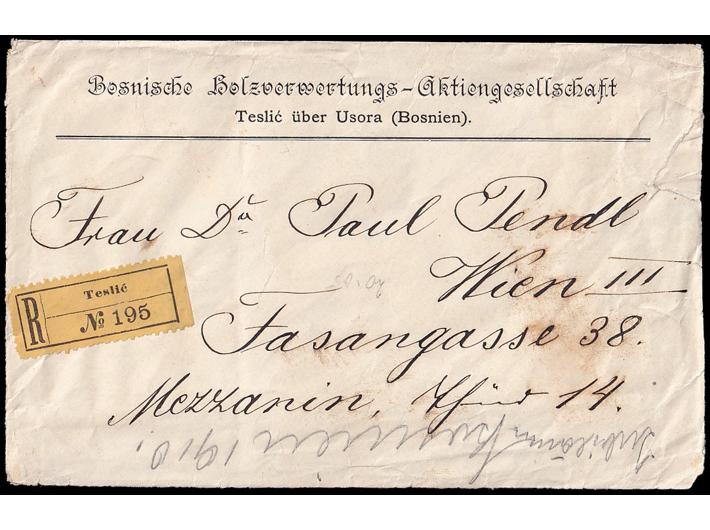 Bosnische Holzverwertungs-Aktiengesellschaft
Teslić über Usora (Bosnien).
Frau Dr Paul Pendl
Wien III
Fasangasse 38.
Mezzanin, Thür 14.
R
Teslić
No 195
Bosnien 1910.